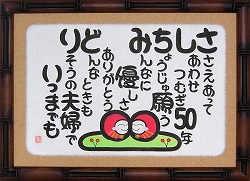 さささえあって
しあわせ
つむぎ50年
みんなに
ちょうじゅ願う
優しさ
ありがとう
どんな
ときも
りそうの夫婦で
いつまでも